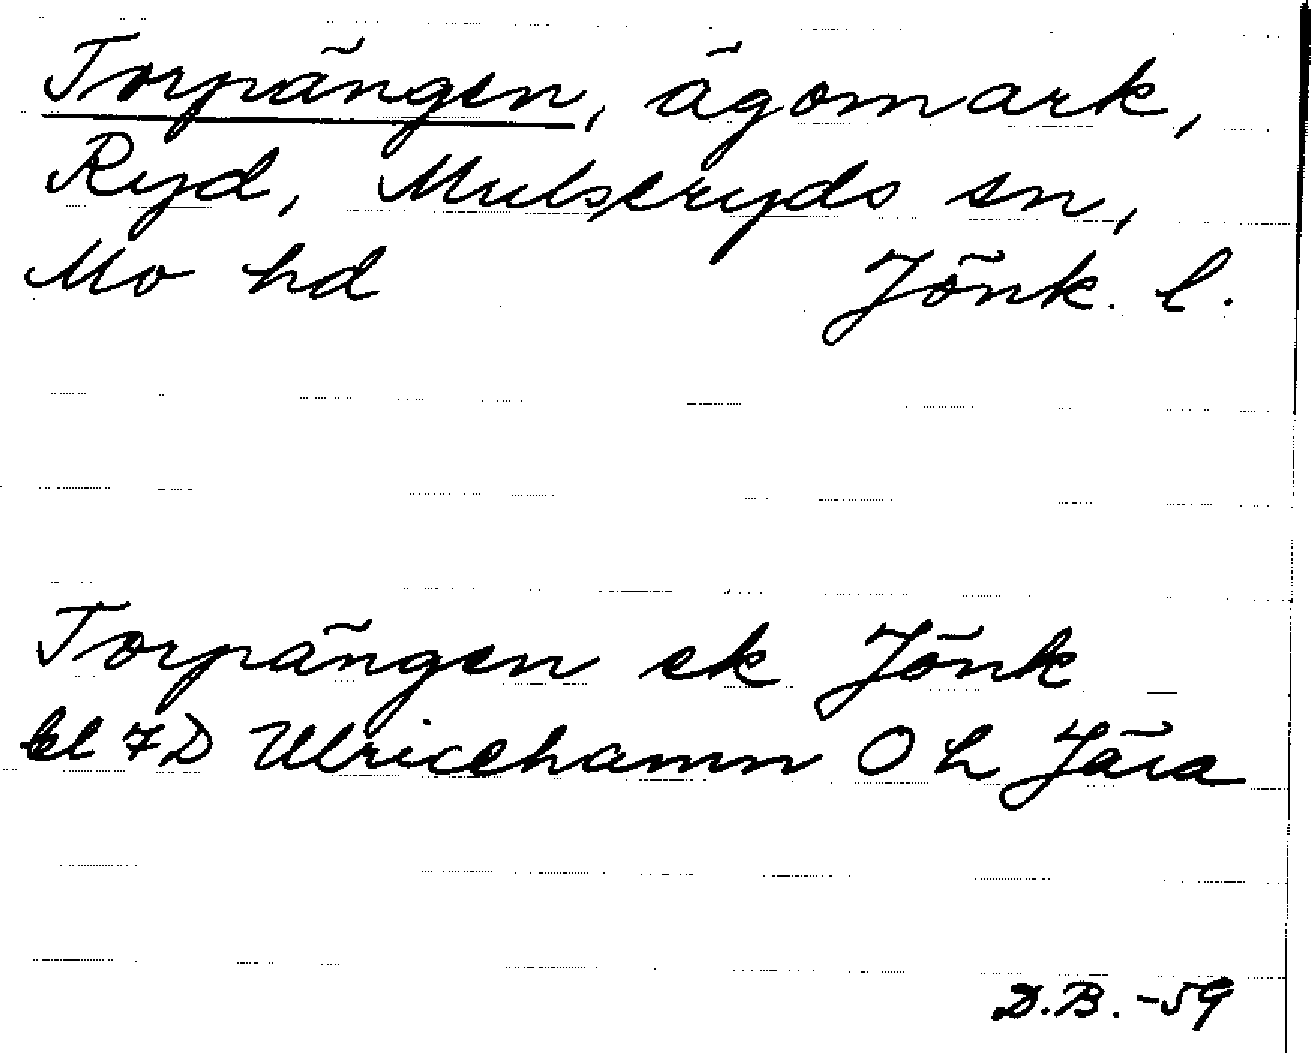 Torpängen, ägomark,
Ryd, Mulseryds sn,
Mo hd Jönk. l.
Torpängen ek Jönk
bl 7D Ulricehamn O L Jära
D.B. -59